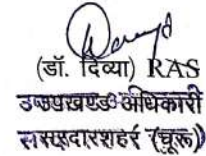 (डॉ. दिव्या) RAS
उपखण्ड अधिकारी
सरदारशहर (चूरू)